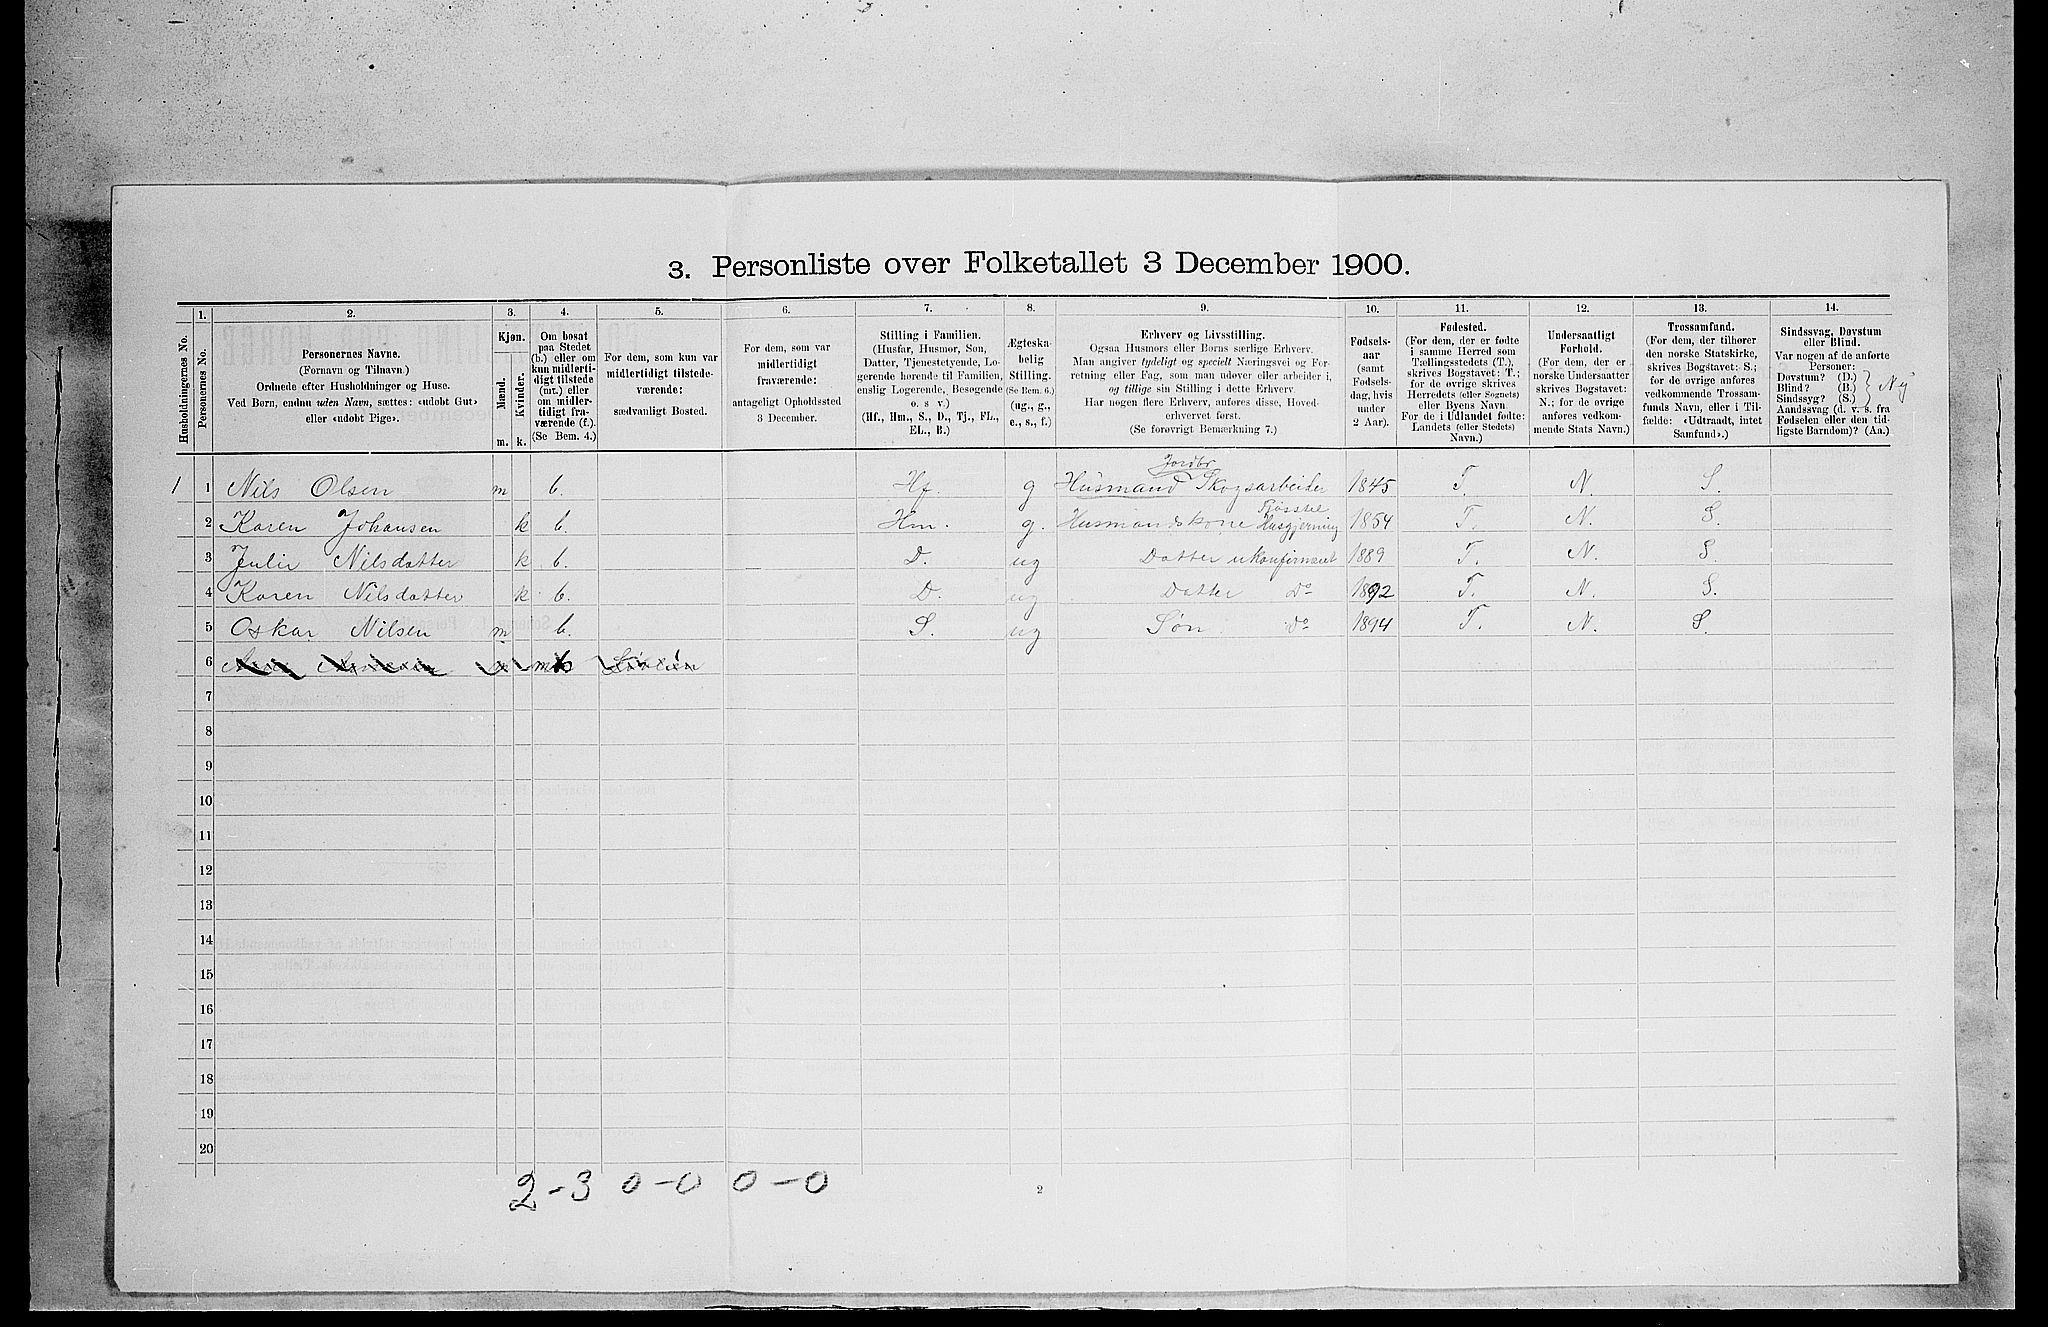 3. Personliste over Folketallet 3 December 1900.
1. 2. 3. 4. 5. 6. 7. 8. 9. 10. 11. 12. 13. 14.
Husholdningernes No.
Personernes No.
Personernes Navne.
(Fornavn og Tilnavn.)
Ordnede efter Husholdninger og Huse.
Ved Børn, endnu uden Navn, sættes: «udøbt Gut»
eller «udøbt Pige».
Kjøn.
Mænd.
Kvinder.
m. k.
Om bosat
paa Stedet
(b.) eller om
kun midlerti-
digt tilstede
(mt.) eller
om midler-
tidigt fra-
værende (f.).
(Se Bem. 4.)
For dem, som kun var
midlertidigt tilstede-
værende:
sædvanligt Bosted.
For dem, som var
midlertidigt
fraværende:
antageligt Opholdssted
3 December.
Stilling i Familien.
(Husfar, Husmor, Søn,
Datter, Tjenestetyende, Lo-
gerende hørende til Familien,
enslig Logerende, Besøgende
o. s. v.)
(Hf., Hm., S., D., Tj., FL.,
EL., B.)
Ægteska-
belig
Stilling.
(Se Bem. 6.)
(ug., g.,
e., s., f.)
Erhverv og Livsstilling.
Ogsaa Husmors eller Børns særlige Erhverv.
Man angiver tydeligt og specielt Næringsvei og For-
retning eller Fag, som man udøver eller arbeider i,
og tillige sin Stilling i dette Erhverv.
Har nogen flere Erhverv, anføres disse, Hoved-
erhvervet først.
(Se forøvrigt Bemærkning 7.)
Fødsels-
aar
(samt
Fødsels-
dag, hvis
under
2 Aar).
Fødested.
(For dem, der er fødte
i samme Herred som
Tællingsstedets (T.),
skrives Bogstavet: T.;
for de øvrige skrives
Herredets (eller Sognets)
eller Byens Navn.
For de i Udlandet fødte:
Landets (eller Stedets)
Navn.)
Undersaatligt
Forhold.
(For dem, der er
norske Undersaatter
skrives Bogstavet:
N.; for de øvrige
anføres vedkom-
mende Stats Navn.)
Trossamfund.
(For dem, der tilhører
den norske Statskirke,
skrives Bogstavet: S.;
for de øvrige anføres
vedkommende Trossam-
funds Navn, eller i Til-
fælde: «Udtraadt, intet
Samfund».)
Sindssvag, Døvstum
eller Blind.
Var nogen af de anførte
Personer:
Døvstum? (D.)
Blind? (B.)
Sindssyg? (S.)
Aandssvag (d. v. s. fra
Fødselen eller den tid-
ligste Barndom)? (Aa.)
Nej
Jordbr
1 1 Nils Olsen m b. Hf. g Husmand Skogsarbeider 1845 T. N. S.
2 Karen Johansen k b. Hm. g. Husmandskone Husgjerning 1854 T. N. S.
3 Julie Nilsdatter k b. D. ug Datter ukonfirmeret 1889 T. N. S.
4 Karen Nilsdatter k b. D. ug Datter Do 1892 T. N. S.
5 Oskar Nilsen m b. S. ug Søn do 1894 T. N. S.
6
7
8
9
10
11
12
13
14
15
16
17
18
19
20
2-3 0-0 0-0
2